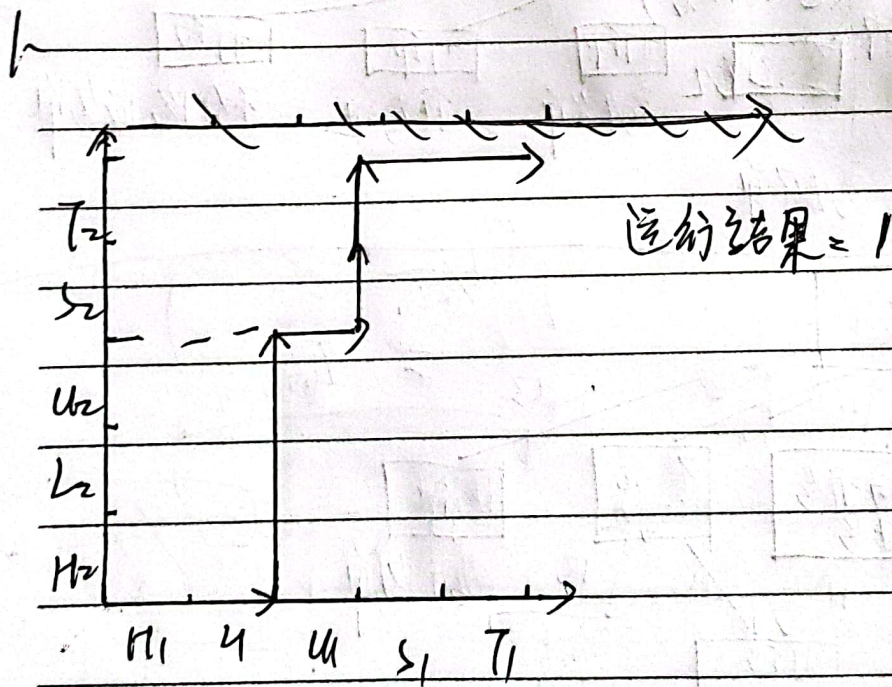 1
T₂
运行结果=1
S₂
U₂
L₂
H₂
H₁ L₁ U₁ S₁ T₁